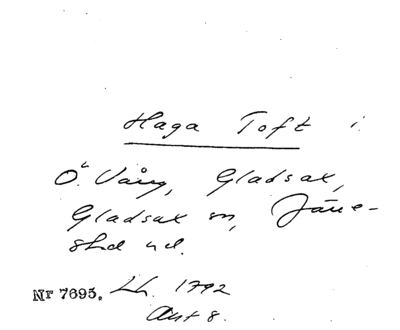 Haga Toft i
Ö. Vång, Gladsax,
Gladsax sn, Järre-
stad hd.
Nr 7695. Lh. 1792
Akt 8.